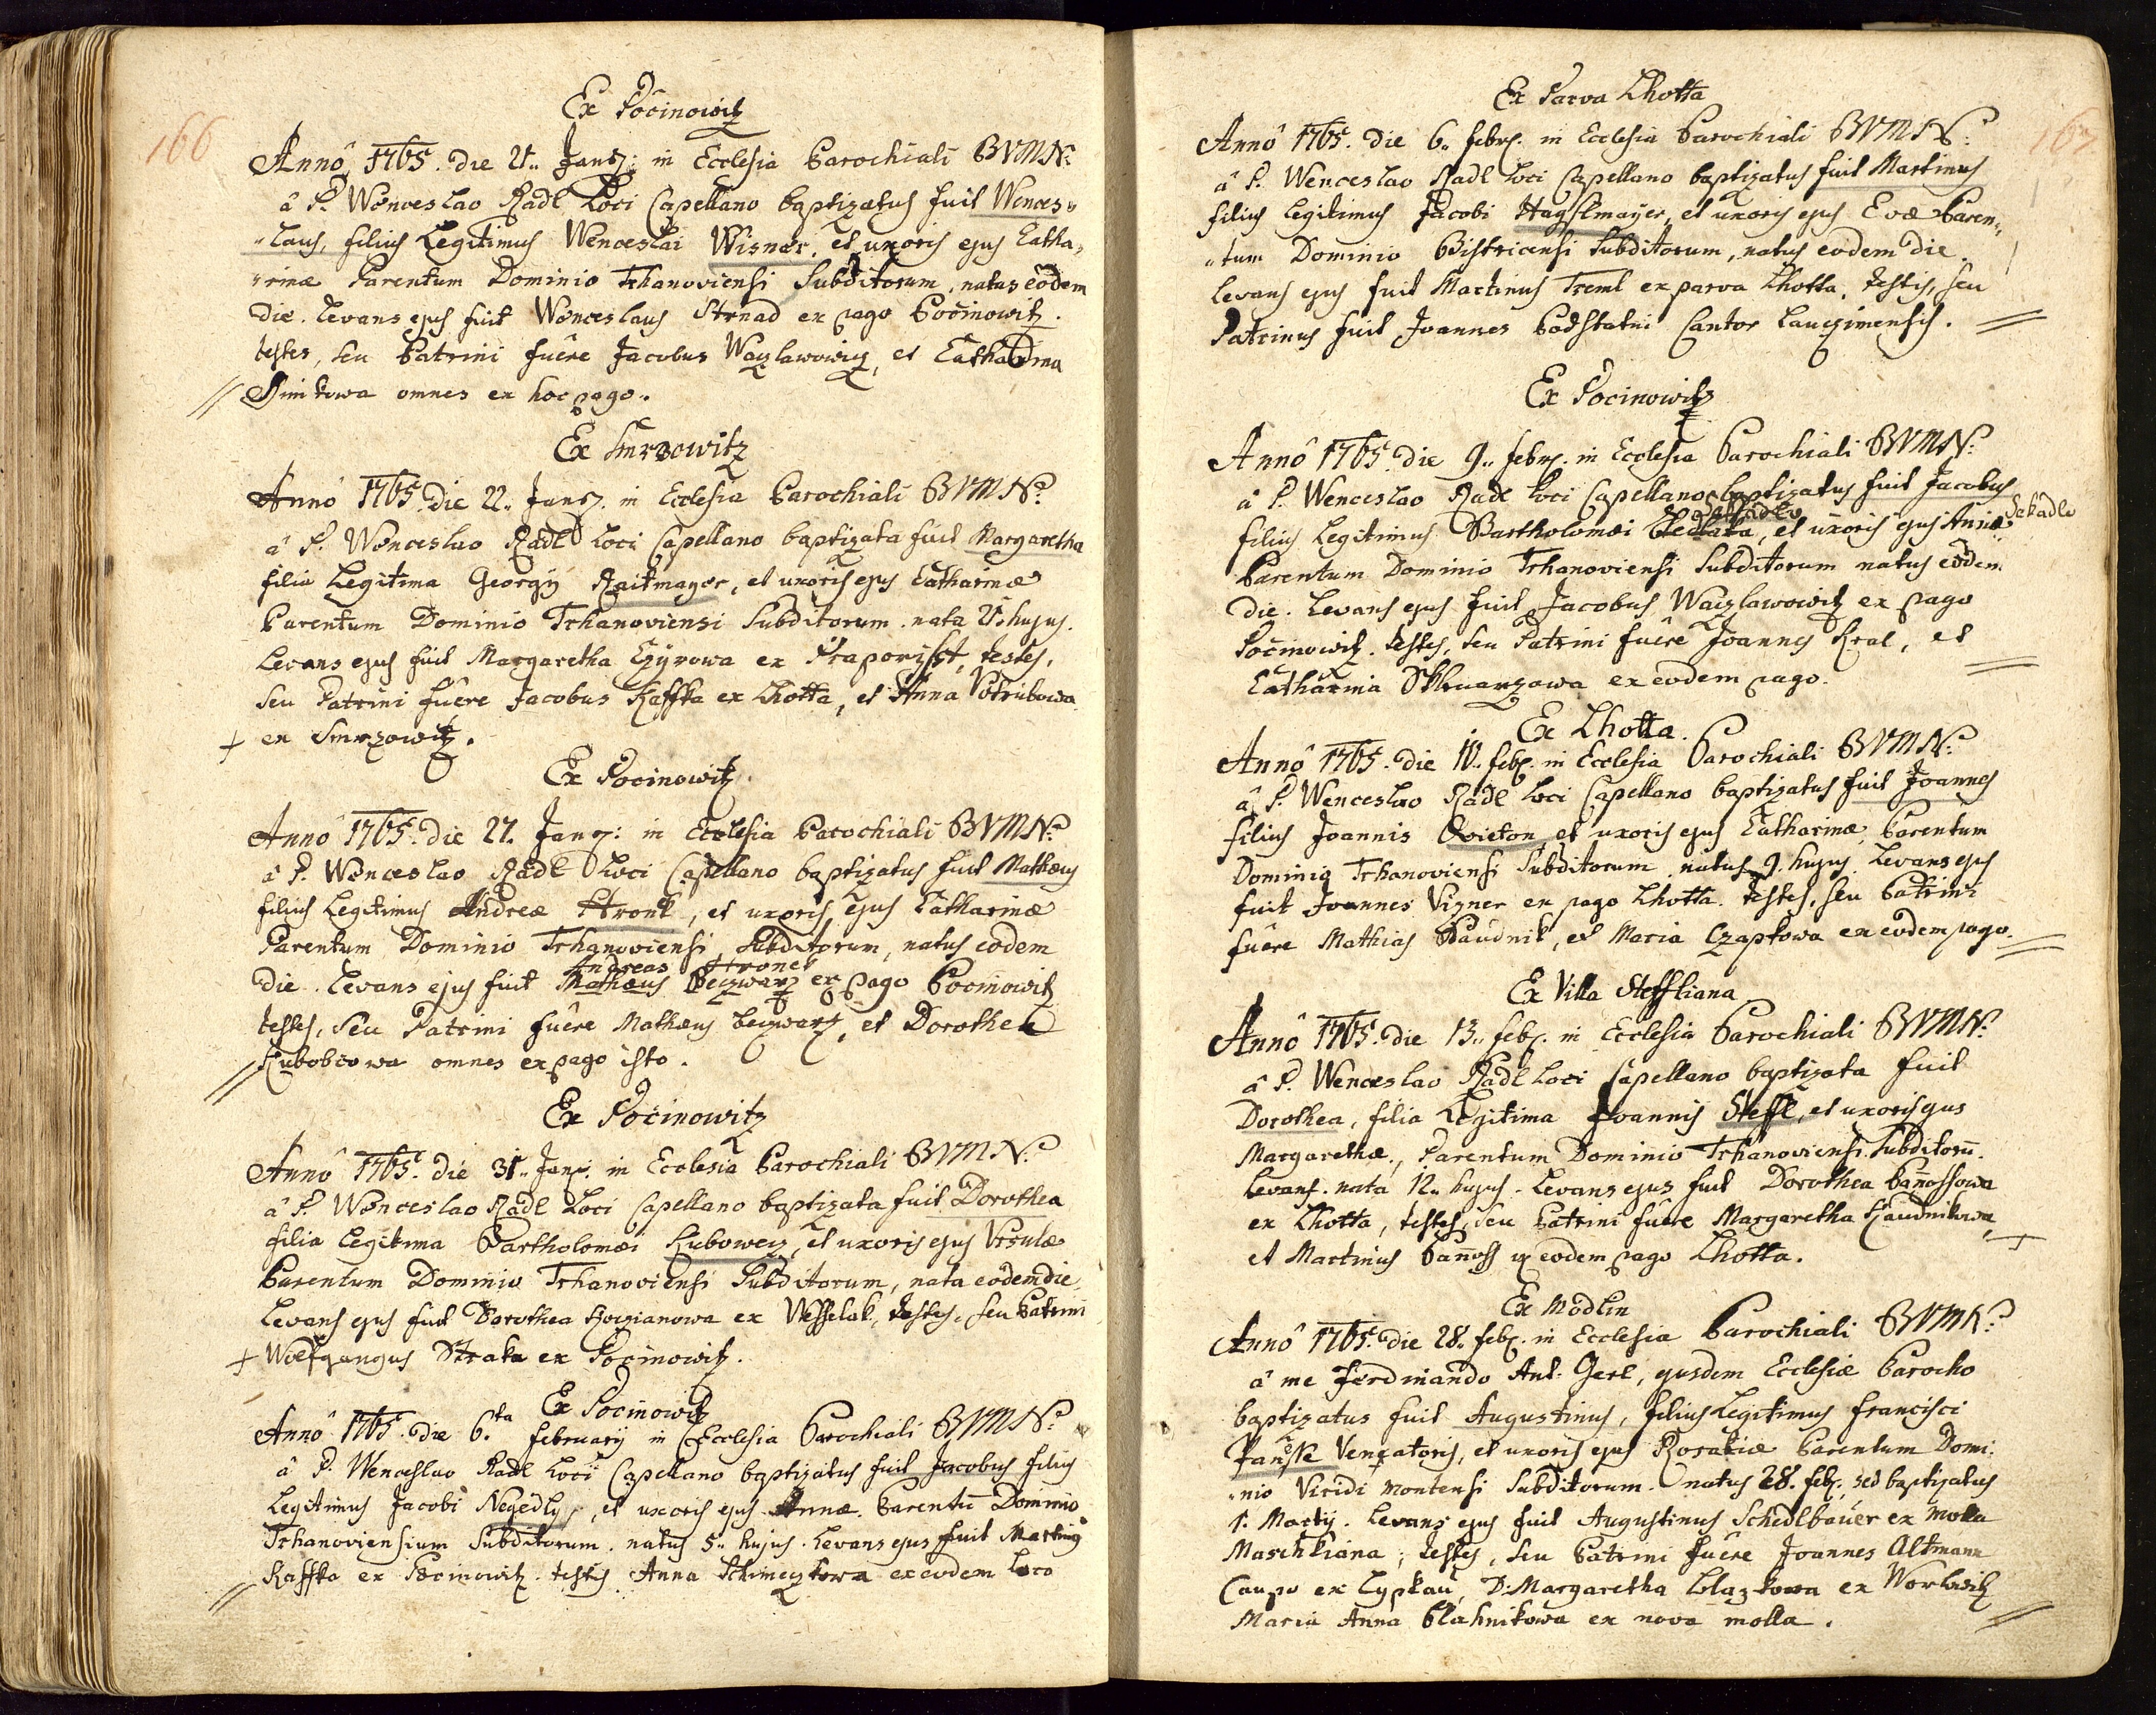 166
Ex Pocinowitz
Annô 1765. die 21.. Janrӱ: in Ecclesia Parochiali BVMN:
â P. Wenceslao Radl Loci Capellano baptizatus fuit Wences„
„laus, filius Legitimus Wenceslai Wisner, et uxoris ejus Catha„
„rinæ Parentum Dominio Trhanoviensi Subditorum, natus eodem
die. Levans ejus fuit Wenceslaus Strnad ex pago Pocinowitz.
testes, seu Patrini fuêre Jacobus Waczlawowicz, et Catharina
omnes ex hoc pago.
Ex Smrzowitz
Annô 1765. die 22.. Janrӱ. in Ecclesia Parochiali BVMN:
â P. Wenceslao Radl Loci Capellano baptizata fuit Margaretha
filia Legitima Georgÿ Raitmayer, et uxoris ejus Catharinæ
Parentum Dominio Trhanoviensi Subditorum. nata 21. hujus.
Levans ejus fuit Margaretha Czyrowa ex Praporisst, testes,
seu Patrini fuêre Jacobus Kaffka ex Lhotta, et Anna Votrubowa
ex Smrzowitz.
Ex Pocinowitz.
Annô 1765. die 27. Janrӱ: in Ecclesia Parochiali BVMN:
â P. Wenceslao Radl Loci Capellano baptizatus fuit Mathæus
filius Legitimus Andreæ Hronk, et uxoris ejus Catharinæ
Parentum Dominio Trhanoviensi Subditorum, natus eodem
Andreas Hronek
die. Levans ejus fuit Mathæus Beczwarz ex pago Pocinowitz
testes, seu Patrini fuêre Mathæus Beczwarz, et Dorothea
Kubobcowa omnes ex pago isto.
Ex Pocinowitz
Annô 1765. die 31.. Janrӱ. in Ecclesia Parochiali BVMN:
â P. Wenceslao Radl Loci Capellano baptizata fuit Dorothea
filia Legitima Bartholomæi Kubowecz, et uxoris ejus Ursulæ
Parentum Dominio Trhanoviensi Subditorum, nata eodem die.
Levans ejus fuit Dorothea ex Wesselak, testes, seu Patrini
Wolfgangus Straka ex Pocinowitz.
Ex Pocinowitz
Annô 1765. die 6.ta Februarÿ in Ecclesia Parochiali BVMN:
â P. Wenceslao Radl Loci Capellano baptizatus fuit Jacobus filius
Legitimus Jacobi Negedly, et uxoris ejus Annæ. Parentū Dominio
Trhanoviensium Subditorum. natus 5.. hujus. Levans ejus fuit Martinus
Kaffka ex Pocinowitz. testis Anna ex eodem Loco
167
Ex Parva Lhotta
Annô 1765. die 6.. febr. in Ecclesia Parochiali BVMN:
â P. Wenceslao Radl Loci Capellano baptizatus fuit Martinus
filius Legitimus Jacobi Haÿslmaÿer, et uxoris ejus Evæ Paren„
„tum Dominio Bistricensi Subditorum, natus eodem die.
Levans ejus fuit Martinus Treml ex parva Lhotta, testis, seu
Patrinus fuit Joannes Podstatni Cantor Lauczimensis.
Ex Pocinowitz
Annô 1765. die 9.. febr. in Ecclesia Parochiali BVMN:
â P. Wenceslao Radl Loci Capellano baptizatus fuit Jacobus
Sekadlo
filius Legitimus Bartholomæi, et uxoris ejus Annæ Sekadlo
Parentum Dominio Trhanoviensi Subditorum natus eodem
die. Levans ejus fuit Jacobus Waczlawowitz ex pago
Pocinowitz. testes, seu Patrini fuêre Joannes Kral, et
Catharina Skhuarzowa ex eodem pago.
Ex Lhotta.
Annô 1765. die 10.. feb. in Ecclesia Parochiali BVMN:
â P. Wenceslao Radl Loci Capellano baptizatus fuit Joannes
filius Joannis Qvieton et uxoris ejus Catharinæ, Parentum
Dominio Trhanoviensi Subditorum, natus 9. hujus. Levans ejus
fuit Joannes Vizner ex pago Lhotta. testes, seu Patrini
fuêre Mathias Haudnik, et Maria Czapkowa ex eodem pago.
Ex Villa Steffliana
Annô 1765. die 13.. feb. in Ecclesia Parochiali BVMN:
â P. Wenceslao Radl Loci Capellano baptizata fuit
Dorothea, filia Legitima Joannis Steffl, et uxoris ejus
Margarethæ, Parentum Dominio Trhanoviensi Subditorū.
Levans. nata 12.. hujus. Levans ejus fuit Dorothea Bañossowa
ex Lhotta, testes, seu Patrini fuêre Margaretha Haudnikowa,
et Martinus Bañoss ex eodem pago Lhotta.
Ex Modlin
Annô 1765. die 28. feb. in Ecclesia Parochiali BVMN:
â me Ferdinando Ant: Gerl, ejusdem Ecclesiæ Parocho
baptizatus fuit Augustinus, filius Legitimus Francisci
Venatoris, et uxoris ejus Rosaliæ Parentum Domi:
„nio Viridi montensi Subditorum. natus 28. feb. sed baptizatus
1. Martÿ. Levans ejus fuit Augustinus Schedlbauer ex Molla
Maschkiana; testes, seu Patrini fuêre Joannes Altmann
Caupo ex Lypkau, D: Margaretha Wlazkowa ex Worlwitz
Maria Anna Blahnikowa ex nova molla.